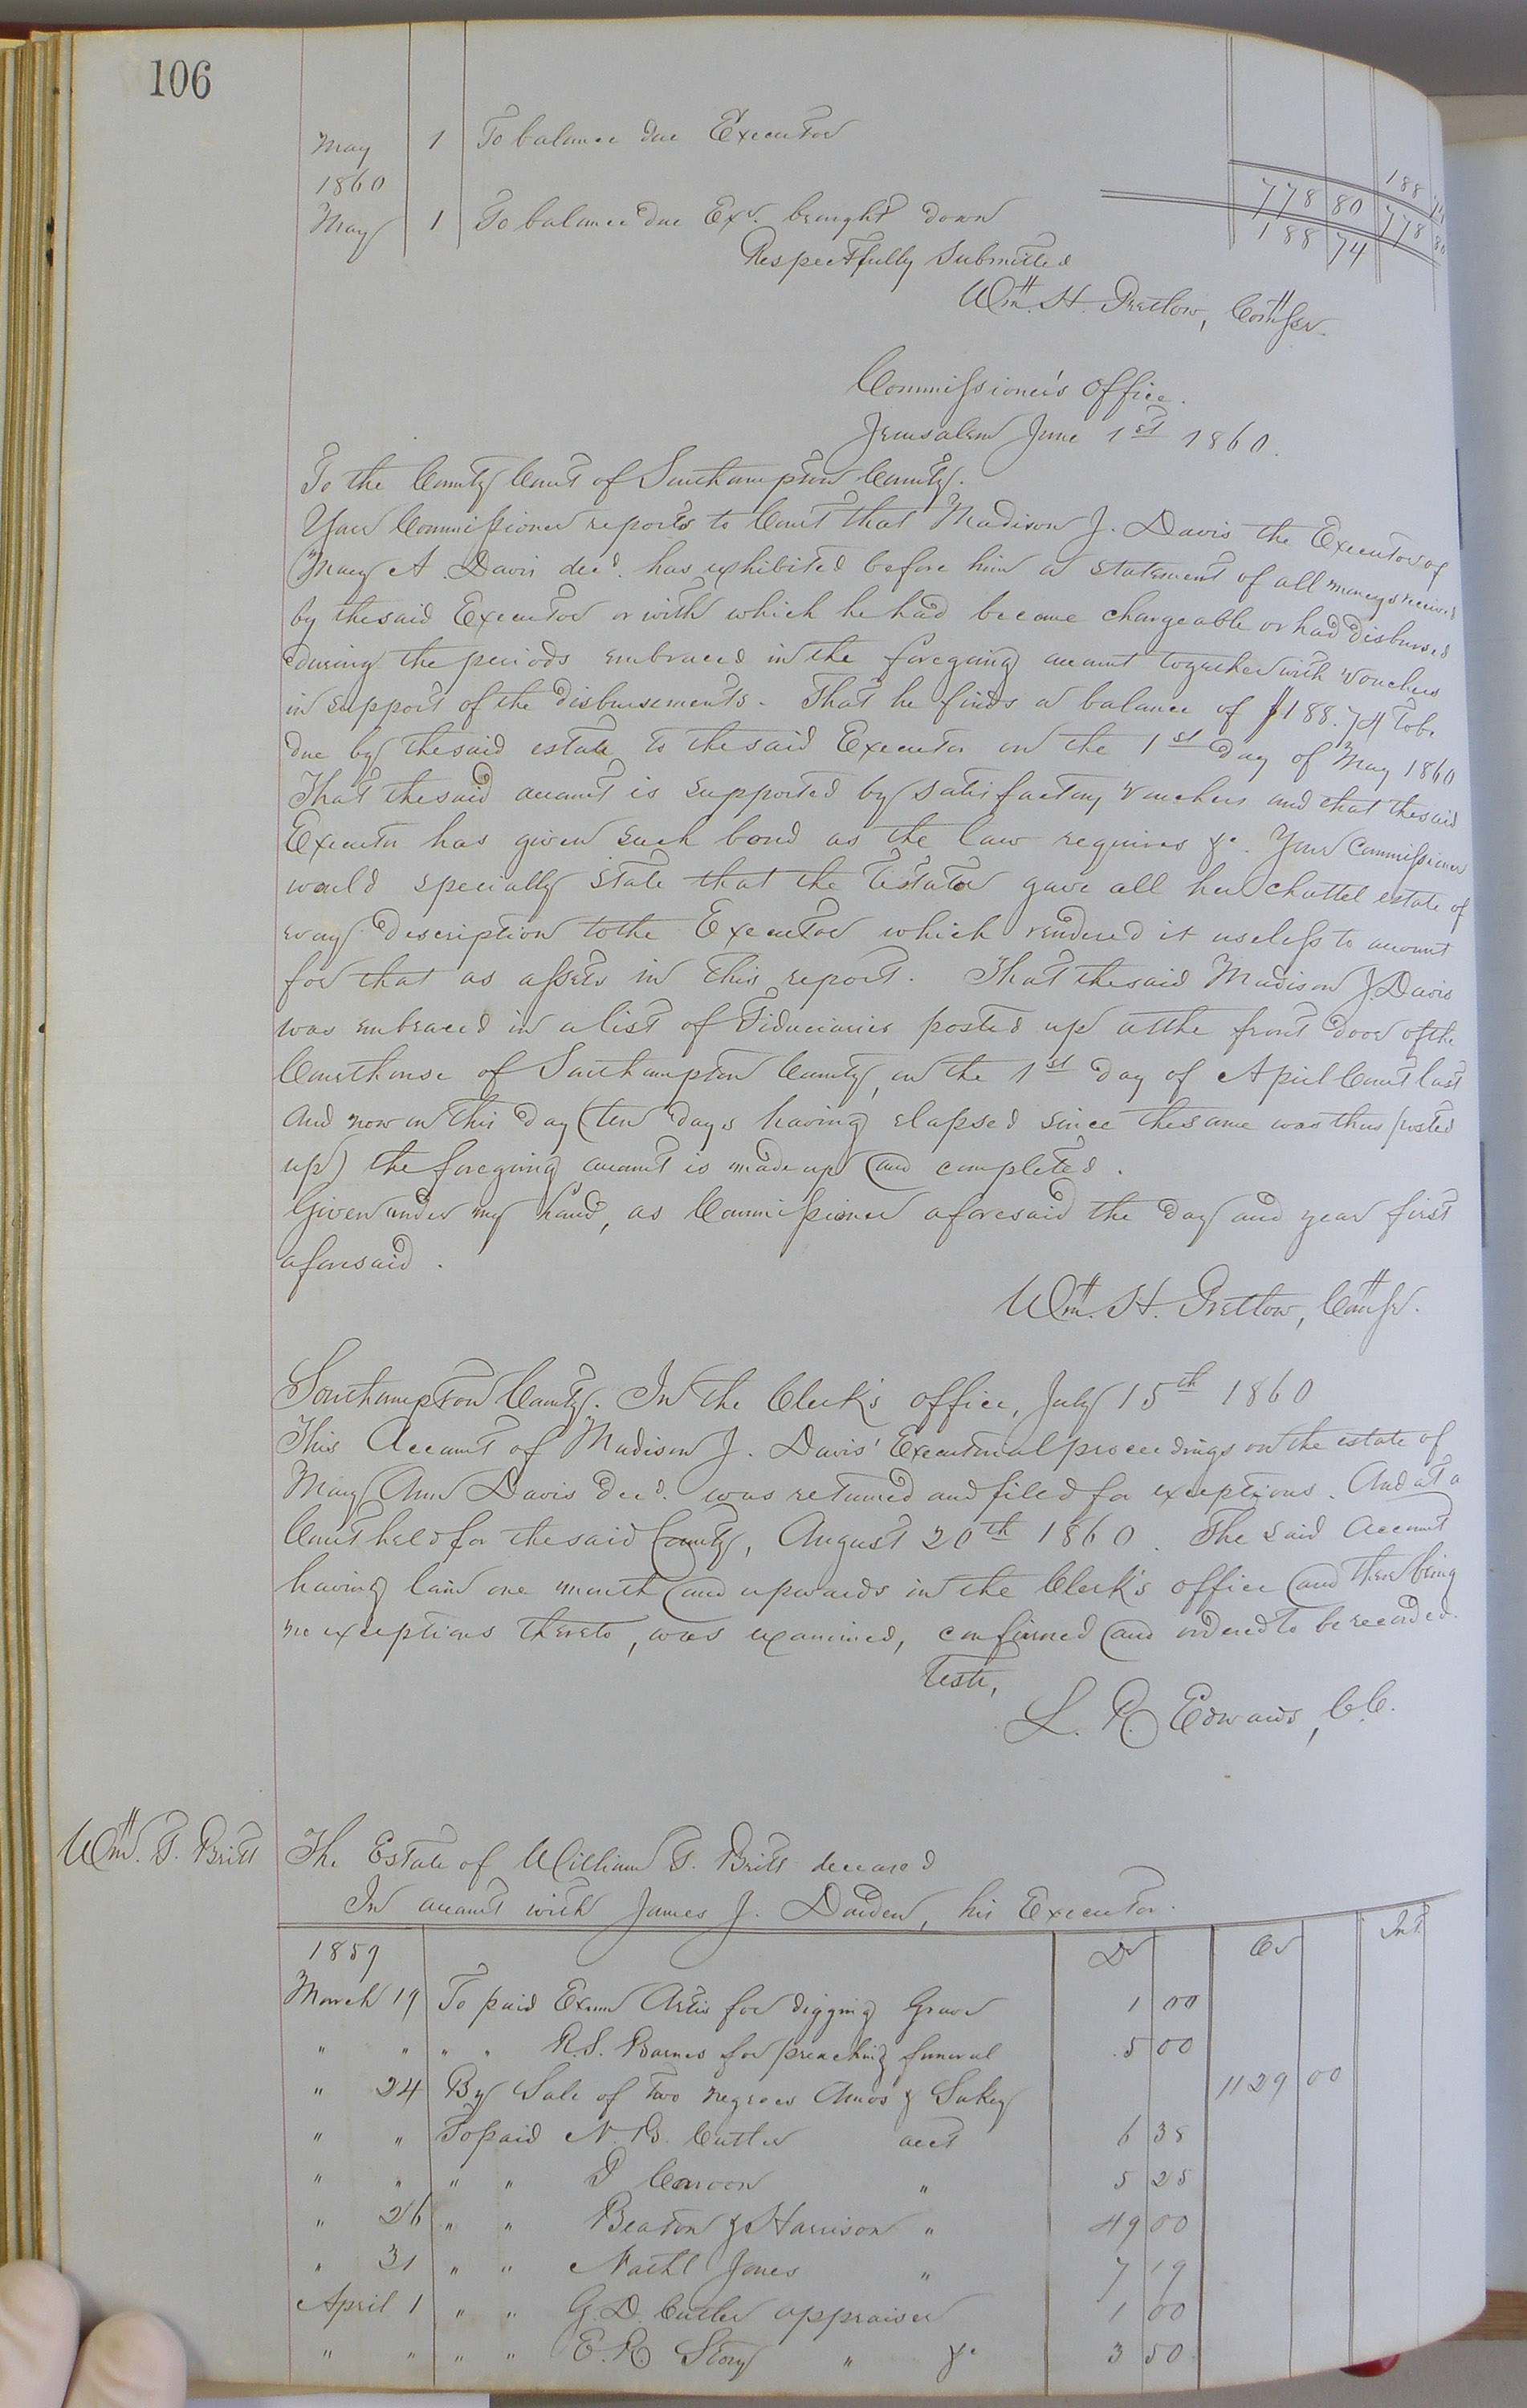 106
May 1 To balance due Executor 188 74
1860 778 80 778 80
May 1 To balance due Exr. brought down 188 74
Respectfully Submitted
Wm. H. Pretlow, Commssr.
Commissioner's Office.
Jerusalem June 1st 1860.
To the County Court of Southampton County.
Your Commissioner reports to Court that Madison J. Davis the Executor of
Mary A. Davis decd. has exhibited before him a statement of all moneys received
by the said Executor or with which he had become chargeable or had disbursed
during the periods embraced in the foregoing account together with vouchers
in support of the disbursements. That he finds a balance of $188.74 to be
due by the said estate to the said Executor on the 1st day of May 1860
That the said account is supported by satisfactory vouchers and that the said
Executor has given such bond as the law requires &c. Your Commissioner
would specially state that the Testator gave all her chattel estate of
every description to the Executor which rendered it useless to account
for that as assets in this report. That the said Madison J. Davis
was embraced in a list of Fiduciaries posted up at the front door of the
Courthouse of Southampton County, on the 1st day of April Court last
and now on this day (ten days having elapsed since the same was thus posted
up) the foregoing account is made up and completed.
Given under my hand, as Commissioner aforesaid the day and year first
aforesaid.
Wm. H. Pretlow, Commssr.
Southampton County. In the Clerk's office, July 15th 1860
This Account of Madison J. Davis' Executorial proceedings on the estate of
Mary Ann Davis decd. was returned and filed for exceptions. And at a
Court held for the said County, August 20th 1860. The said Account
having lain one month and upwards in the Clerk's office and there being
no exceptions thereto, was examined, confirmed and ordered to be recorded.
Teste,
L. R. Edwards, C.C.
Wm. T. Britt
The Estate of William T. Britt deceased
In account with James J. Darden, his Executor.
1859 Dr Cr Int
March 19 To paid Exum Artis for digging Grave 1 00
" " " " R.S. Barnes for preaching funeral 5 00
" 24 By Sale of Two negroes Amos & Sukey 1129 00
" " To paid N. B. Cutler acct 6 38
" " " " Caroon " 5 25
" 26 " " Beaton & Harrison " 49 00
" 31 " " Nathl Jones " 7 19
April 1 " " G. D. Cutler appraiser 1 00
" " " " E. R. Story " &c 3 50